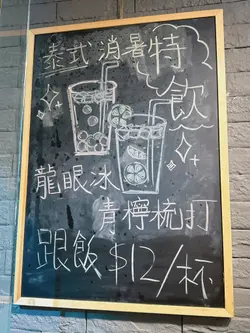 泰式消暑特
飲
龍眼冰
青檸梳打
跟飯$12/杯